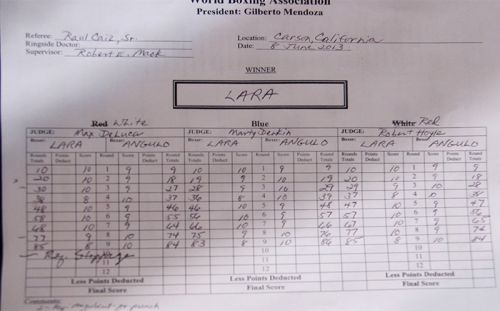 World Boxing Association
President: Gilberto Mendoza
Referee: Raul Caiz, Sr.
Location: Carson, California
Ringside Doctor:
Date: 8 June 2013
Supervisor: Robert E. Mack
WINNER
LARA
Red White Blue White Red
JUDGE: Max DeLuca JUDGE: Marty Denkin JUDGE: Robert Hoyle
Boxer: LARA Boxer: ANGULO Boxer: LARA Boxer: ANGULO Boxer: LARA Boxer: ANGULO
Rounds Totals Points Deduct Score Round Score Points Deduct Round Totals
10 10 1 9 9 10 10 1 9 9 10 10 1 9 9
20 10 2 9 18 19 9 2 10 19 20 10 2 9 18
30 10 3 9 27 28 9 3 10 29 29 9 3 10 28
38 8 4 10 37 36 8 4 10 39 37 8 4 10
48 10 5 9 46 46 10 5 9 48 47 10 5 9 47
58 10 6 9 55 56 10 6 9 57 57 10 6 9 56
68 10 7 9 64 66 10 7 9 66 67 10 7 9 65
77 9 8 10 74 75 9 8 10 76 77 10 8 9 74
85 8 9 10 84 83 8 9 10 86 85 8 9 10 84
10 10 10
11 11 11
12 12 12
Less Points Deducted Less Points Deducted Less Points Deducted
Final Score Final Score Final Score
Comments: